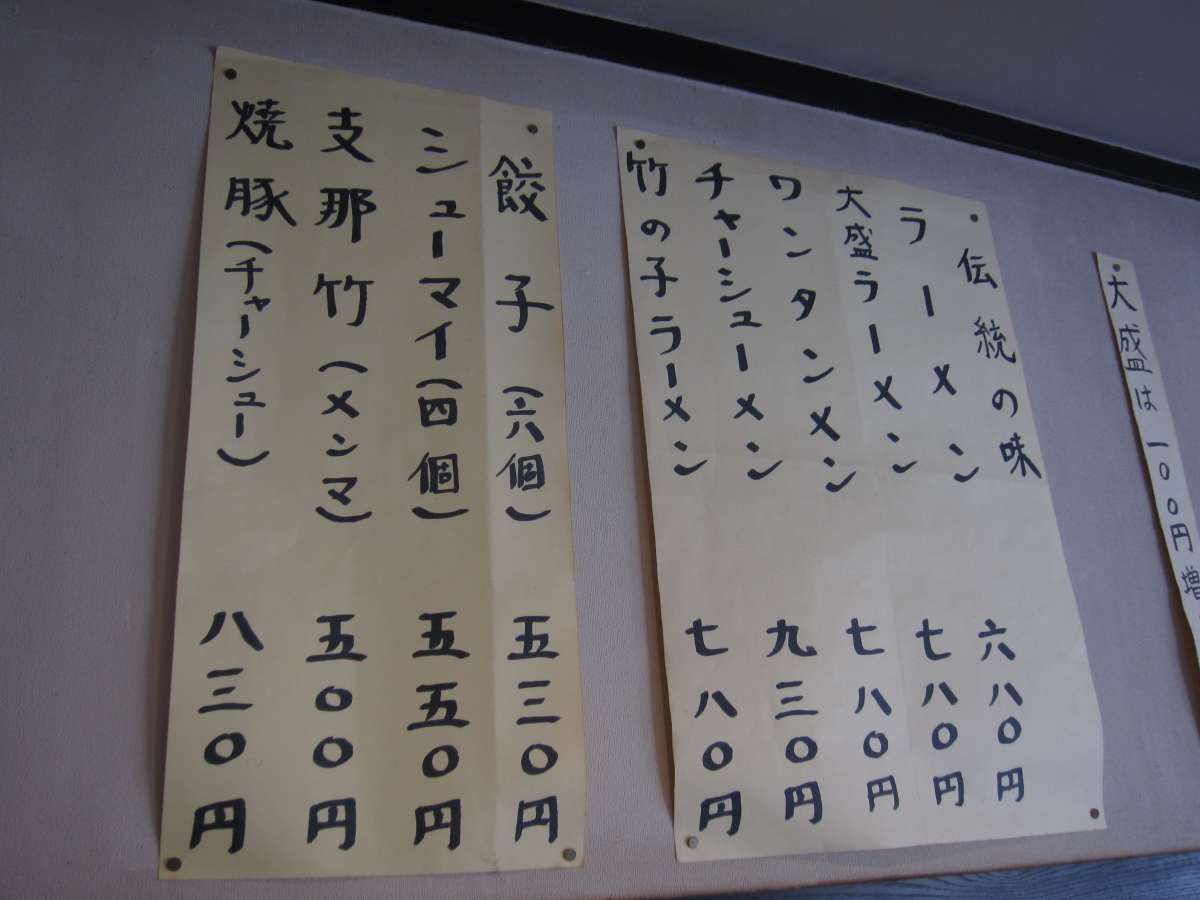 大盛は一〇〇円増
伝統の味
ラーメン 六八〇円
大盛ラーメン 七八〇円
ワンタンメン 七八〇円
チャーシューメン 九三〇円
竹の子ラーメン 七八〇円
餃子(六個) 五三〇円
シューマイ(四個) 五五〇円
支那竹(メンマ) 五〇〇円
焼豚(チャーシュー) 八三〇円